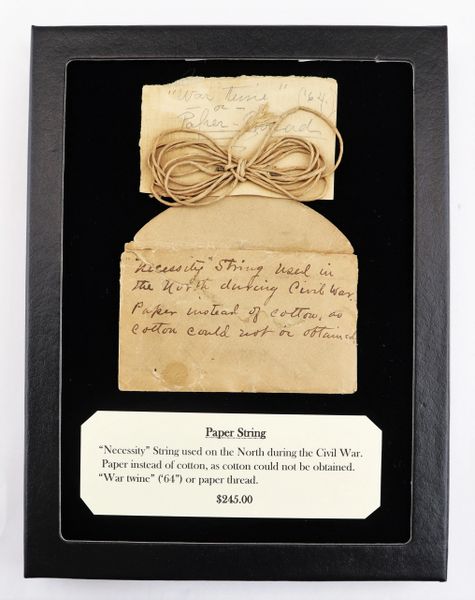 "War twine" '64.
— or —
Paper-Thread
"Necessity" String used in
the North during Civil War.
Paper instead of cotton, as
cotton could not be obtained.
Paper String
"Necessity" String used on the North during the Civil War.
Paper instead of cotton, as cotton could not be obtained.
"War twine" ('64") or paper thread.
$245.00